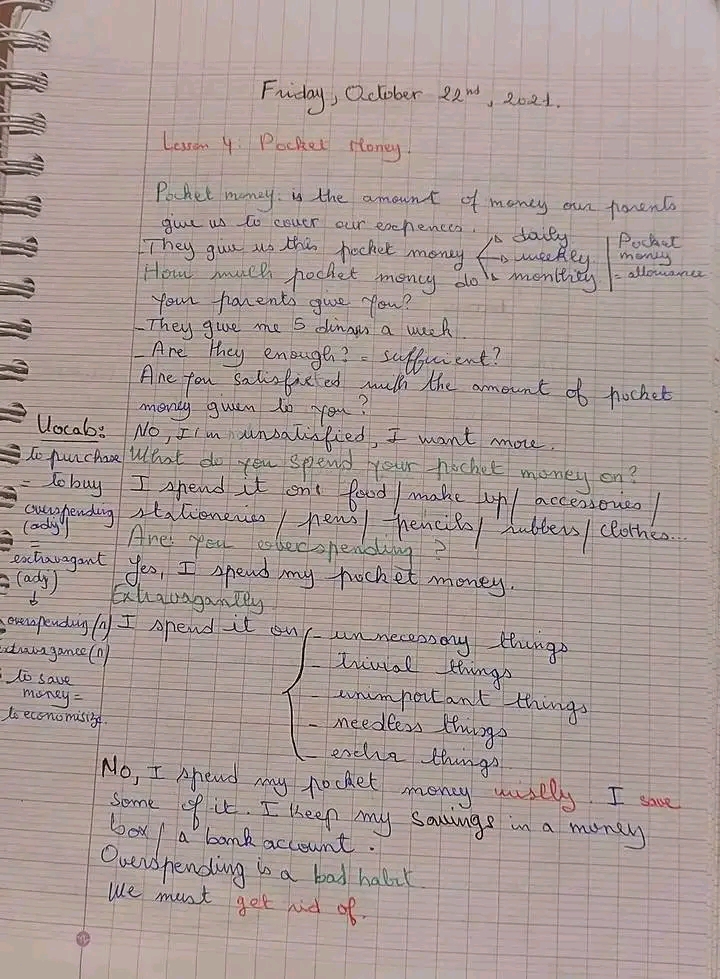 Friday, October 22nd, 2021.
Lesson 4: Pocket Money.
Pocket money: is the amount of money our parents
give us to cover our expences.
They give us this pocket money → daily → weekly → monthly | Pocket money = allowance
How much pocket money do
your parents give you?
- They give me 5 dinars a week.
- Are they enough? = sufficient?
Are you satisfied with the amount of pocket
money given to you?
No, I'm unsatisfied, I want more.
What do you spend your pocket money on?
I spend it on: food / make up / accessories /
stationeries / pens / pencils / rubbers / clothes...
Are you overspending?
Yes, I spend my pocket money.
Extravagantly
I spend it on
- unnecessary things
- trivial things
- unimportant things
- needless things
- extra things
No, I spend my pocket money wiselly. I save
some of it. I keep my savings in a money
box / a bank account.
Overspending is a bad habit
We must get rid of.
Vocab:
to purchase
= to buy
overspending
(adj)
=
extravagant
(adj)
↓
overspending (n)
extravagance (n)
to save
money =
to economisize.